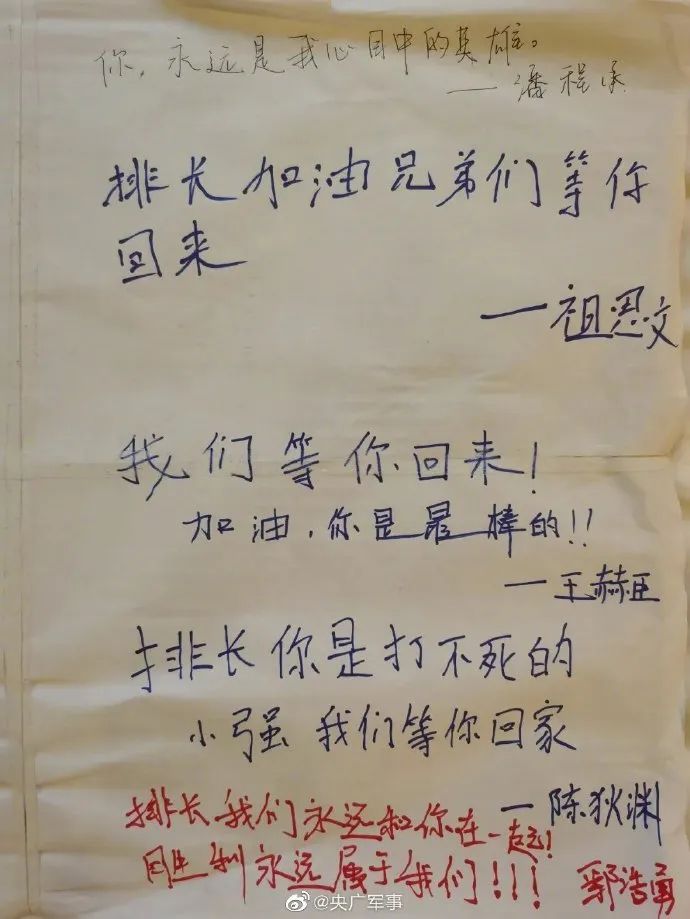 你，永远是我心目中的英雄。
——潘程承
排长加油兄弟们等你
回来
——祖恩文
我们等你回来！
加油，你是最棒的！！
——王赫臣
排长你是打不死的
小强 我们等你回家
——陈狄渊
排长我们永远和你在一起！
胜利永远属于我们！！！ 鄢浩勇
@央广军事